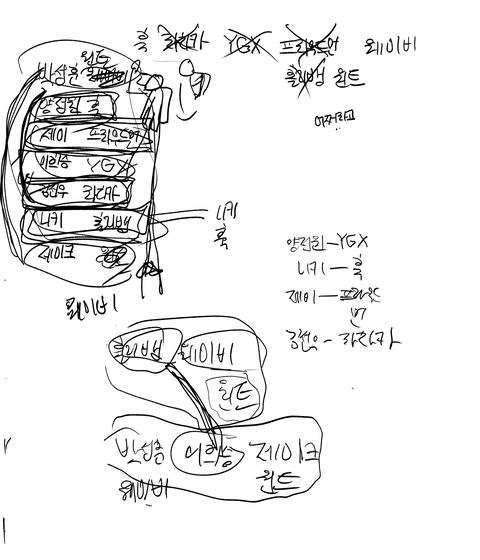 훅 라치카 YGX 프라우드먼 웨이비
홀리뱅 원트
어쩌라고
원트
박성훈
양정원 훅
제이 프라우드먼
이희승 YGX
김선우 라치카
니키 홀리뱅
제이크
웨이비
니키
훅
양정원-YGX
니키-훅
제이-프라우드
먼
김선우-라치카
홀리뱅 웨이비
원트
박성훈 이희승 제이크
웨이비 원트